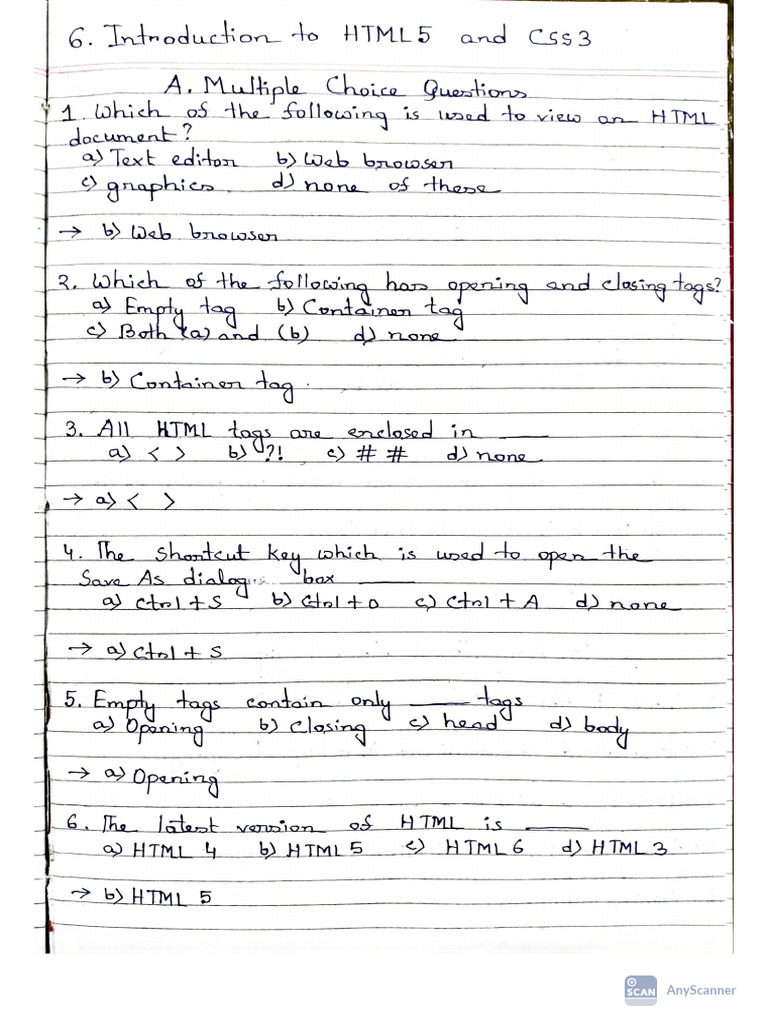 6. Introduction to HTML5 and CSS3
A. Multiple Choice Questions
1. Which of the following is used to view an HTML
document?
a) Text editor b) Web browser
c) graphics. d) none of these
→ b) Web browser
2. Which of the following has opening and closing tags?
a) Empty tag b) Container tag
c) Both (a) and (b) d) none
→ b) Container tag.
3. All HTML tags are enclosed in ____
a) < > b) ?! c) # # d) none
→ a) < >
4. The shortcut key which is used to open the
Save As dialog box ____
a) Ctrl + S b) Ctrl + O c) Ctrl + A d) none
→ a) Ctrl + S
5. Empty tags contain only ____ tags
a) Opening b) Closing c) head d) body
→ a) Opening
6. The latest version of HTML is ____
a) HTML 4 b) HTML 5 c) HTML 6 d) HTML 3
→ b) HTML 5
SCAN AnyScanner